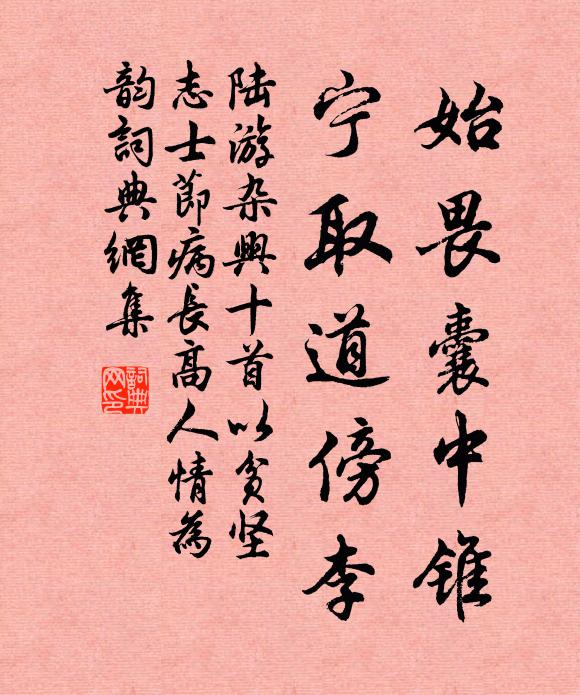 始畏囊中锥
宁取道傍李
陆游杂興十首以贫坚
志士節病長高人情為
韵詞典網集
詞典网印